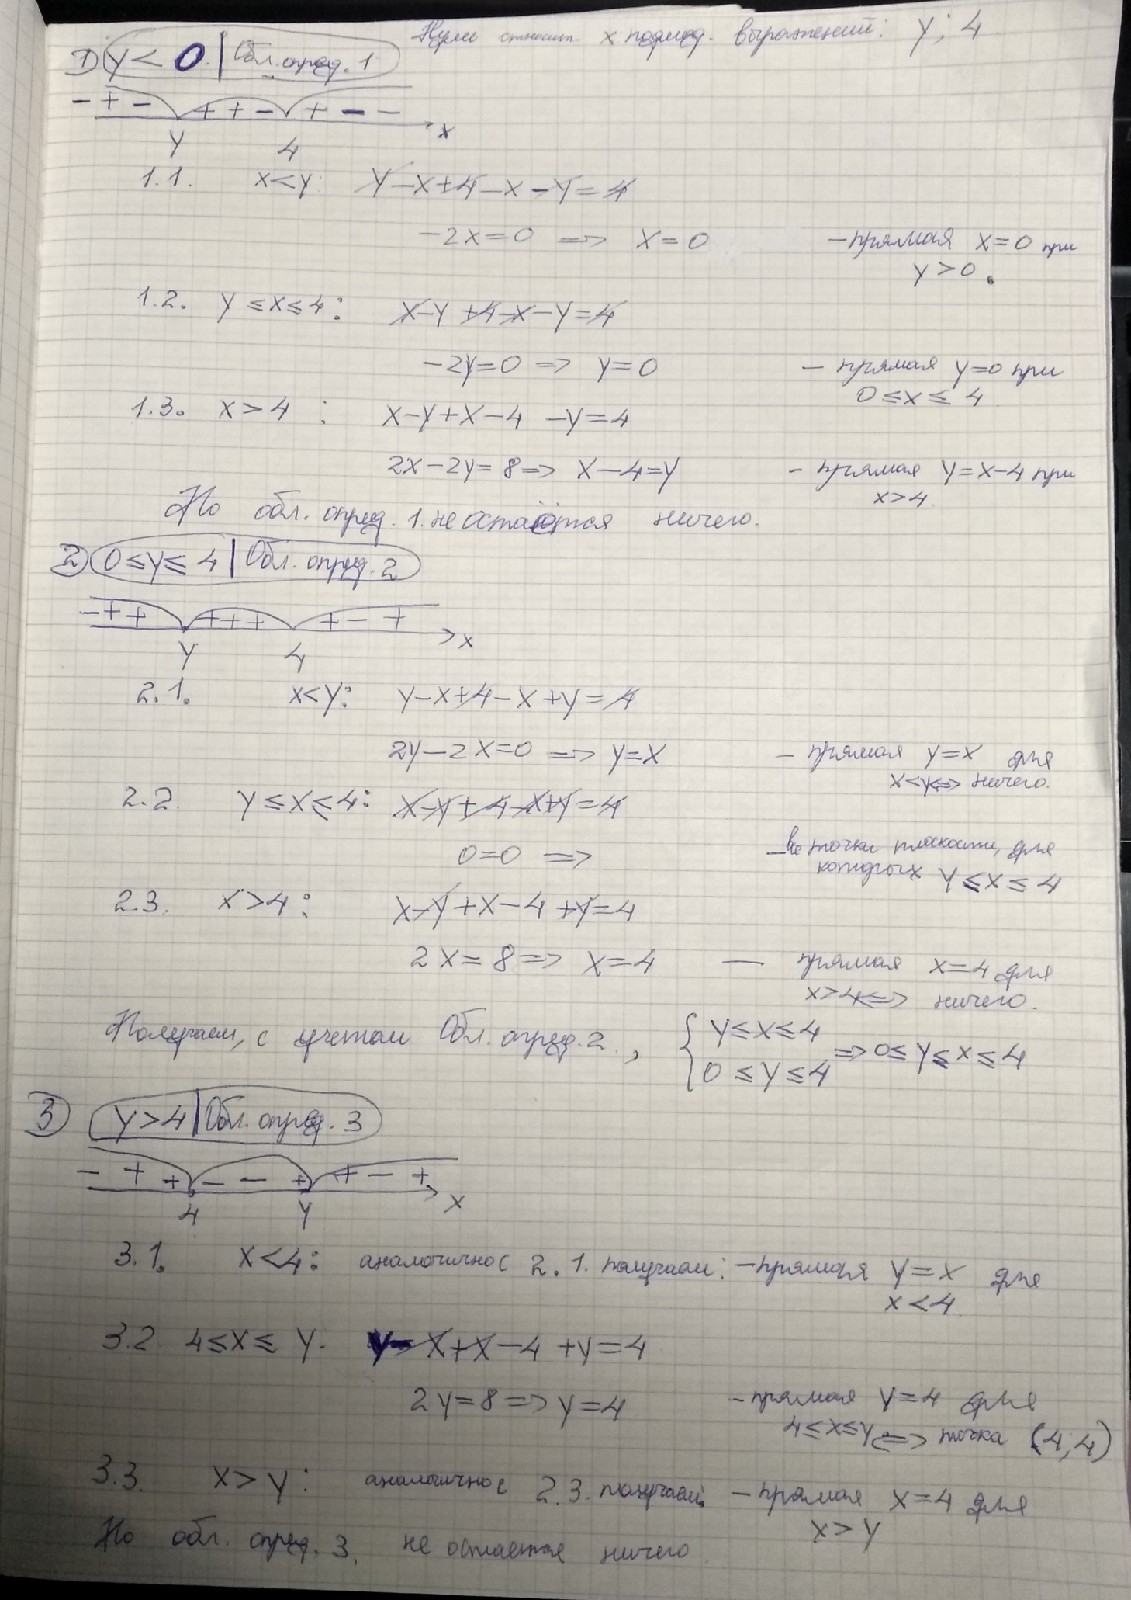 Нули относит. x подмод. выражений: y; 4
1) y < 0. | Обл. опред. 1
- + - + + - + - - x
y 4
1.1. x<y: y-x+4-x-y=4
-2x=0 => x=0 - прямая x=0 при
y>0.
1.2. y≤x≤4: x-y+4-x-y=4
-2y=0 => y=0 - прямая y=0 при
0≤x≤4
1.3. x>4: x-y+x-4-y=4
2x-2y=8 => x-4=y - прямая y=x-4 при
x>4
Но обл. опред. 1. не остаётся ничего.
2) 0≤y≤4 | Обл. опред. 2
- + + + + + + - + x
y 4
2.1. x<y: y-x+4-x+y=4
2y-2x=0 => y=x - прямая y=x для
x<y <=> ничего.
2.2. y≤x≤4: x-y+4-x+y=4
0=0 => - все точки плоскости, для
которых y≤x≤4
2.3. x>4: x-y+x-4+y=4
2x=8 => x=4 — прямая x=4 для
x>4 <=> ничего.
Получаем, с учетом Обл. опред. 2, { y≤x≤4
0≤y≤4 => 0≤y≤x≤4
3) y>4 | Обл. опред. 3
- + + - - + + - + x
4 y
3.1. x<4: аналогично с 2.1. получаем: - прямая y=x для
x<4
3.2 4≤x≤y. y-x+x-4+y=4
2y=8 => y=4 - прямая y=4 для
4≤x≤y <=> точка (4;4)
3.3. x>y: аналогично с 2.3. получаем: - прямая x=4 для
x>y
Но обл. опред. 3. не остается ничего.